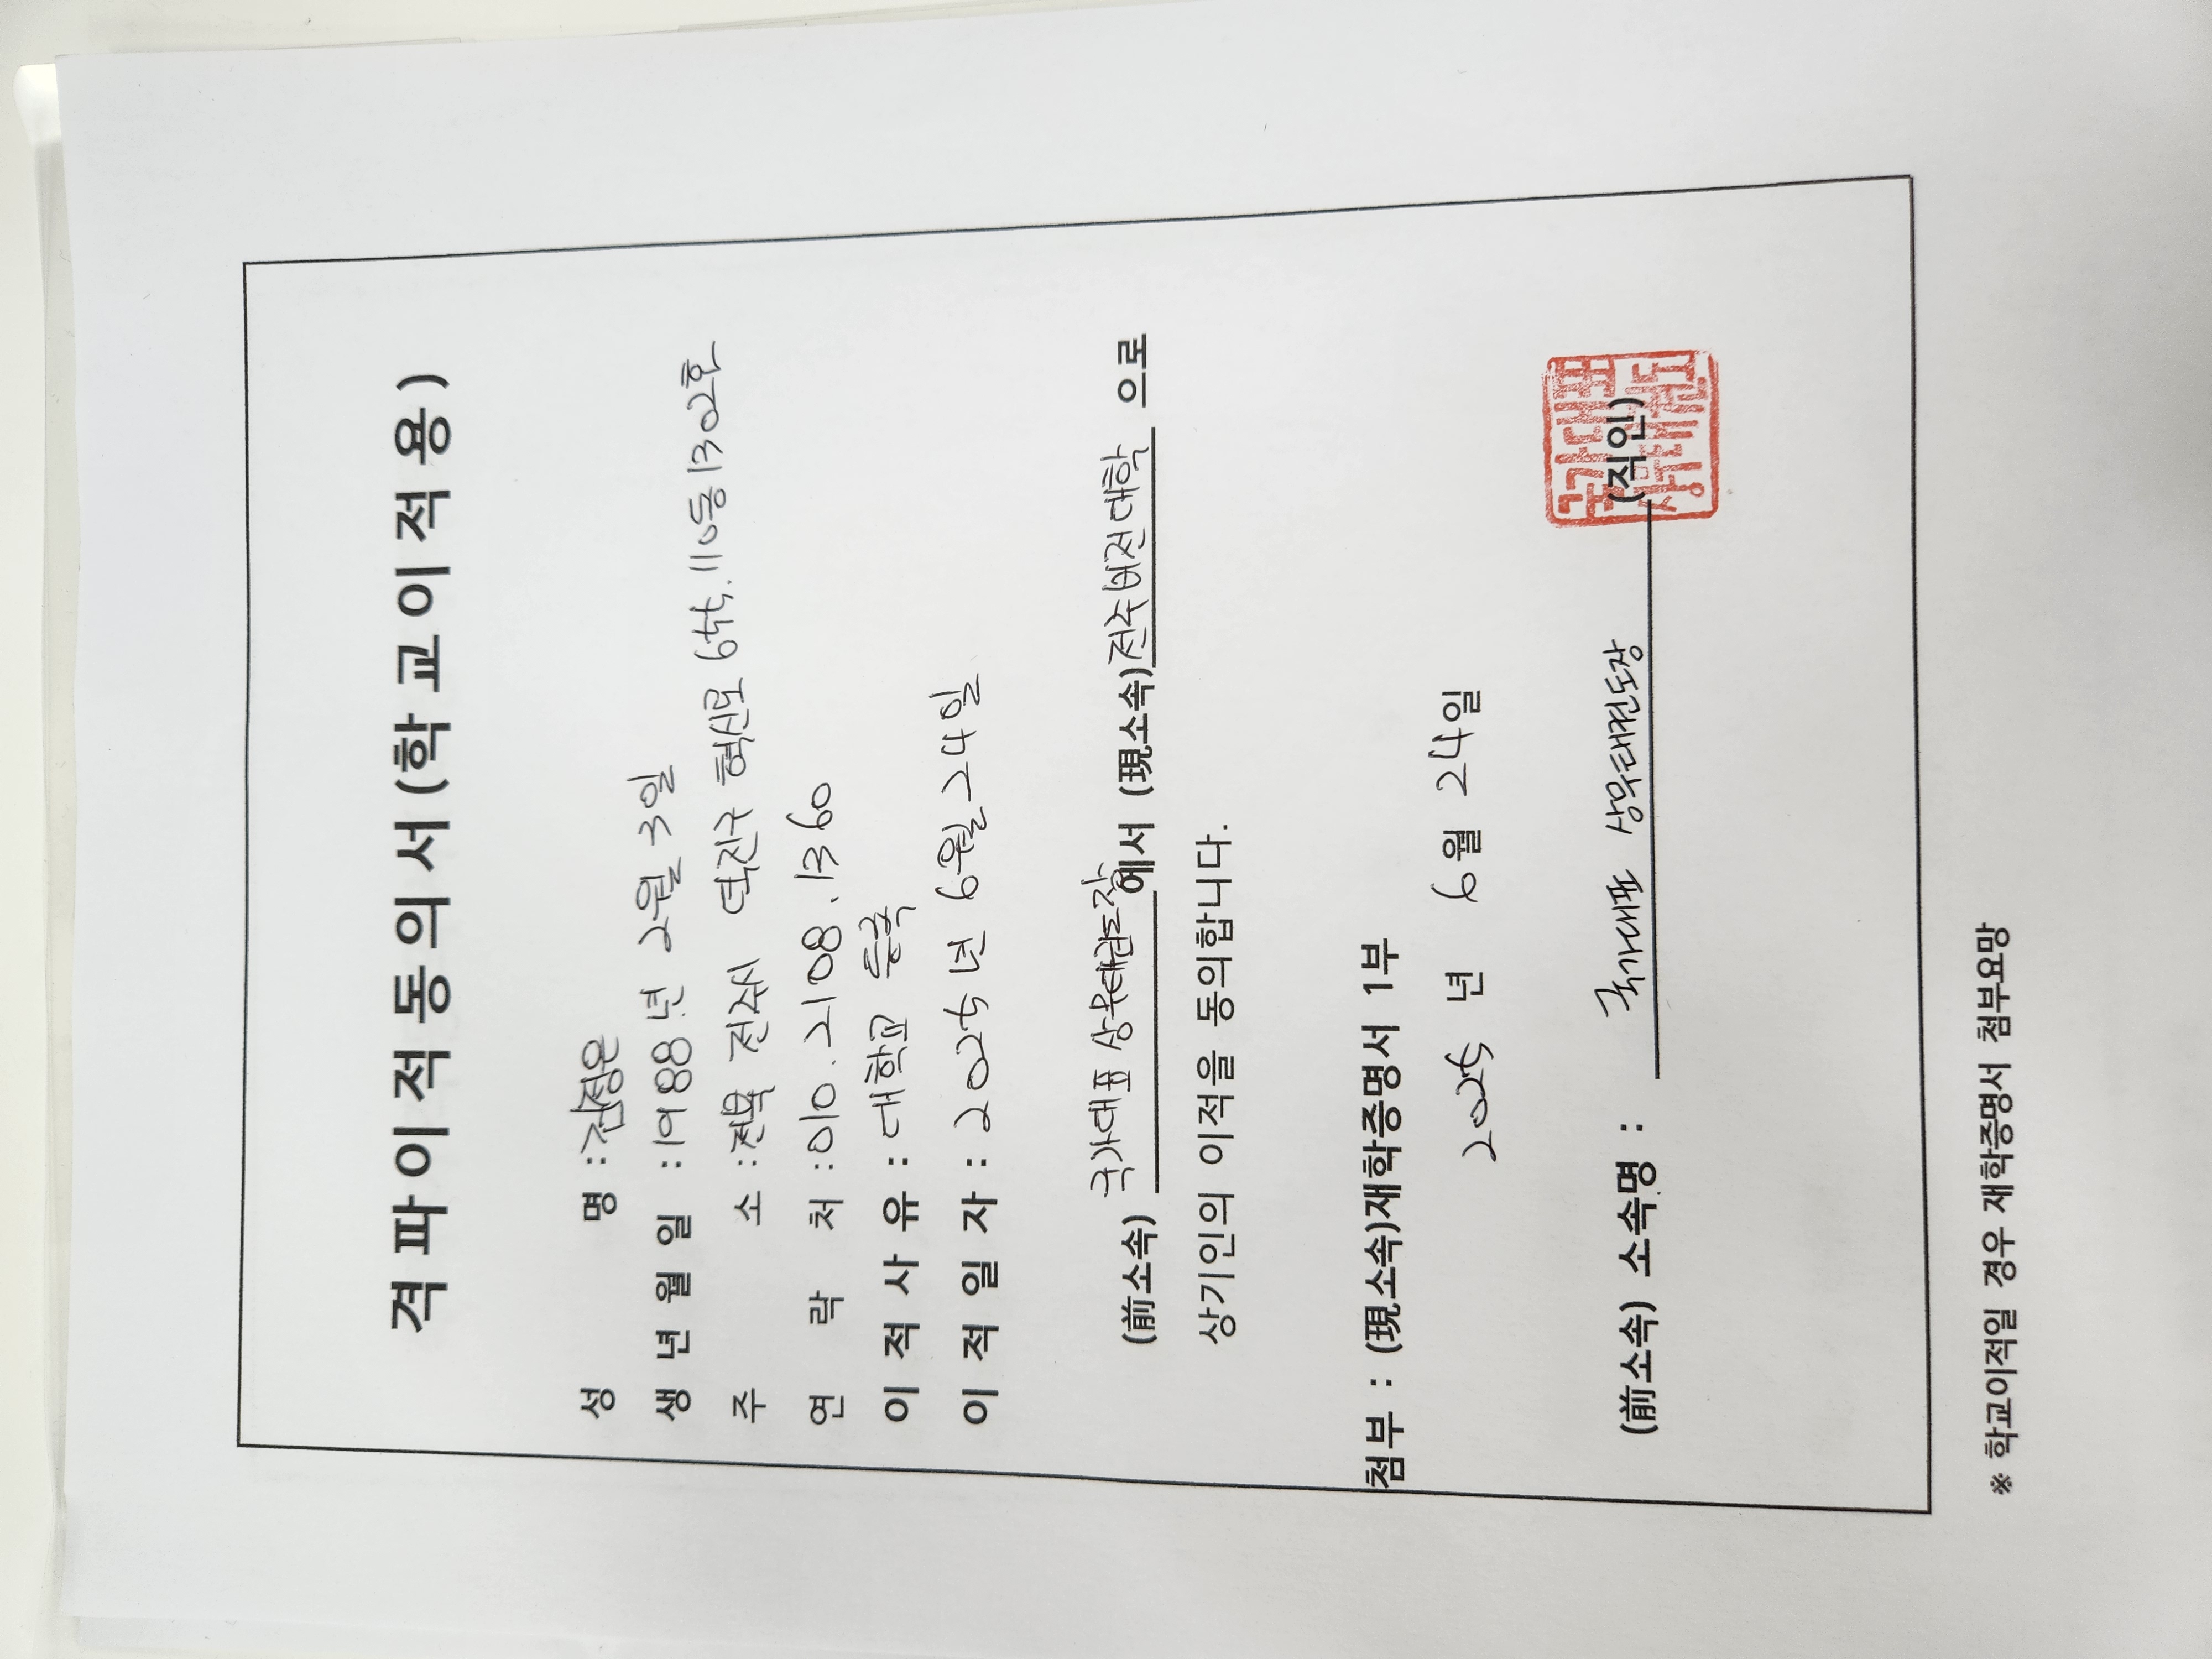 격파이적동의서(학교이적용)
성 명 : 김정은
생년월일 : 1988년 2월 3일
주 소 : 전북 전주시 덕진구 혁신로 655. 110동 1302호
연 락 처 : 010. 2108. 1360
이적사유 : 대학교 등록
이적일자 : 2025년 6월 24일
(前소속) 국가대표 상무태권도장 에서 (現소속) 전주비전대학 으로
상기인의 이적을 동의합니다.
첨부 : (現소속)재학증명서 1부
2025 년 6월 24일
(前소속) 소속명 : 국가대표 상무태권도장 (직인)
※ 학교이적일 경우 재학증명서 첨부요망